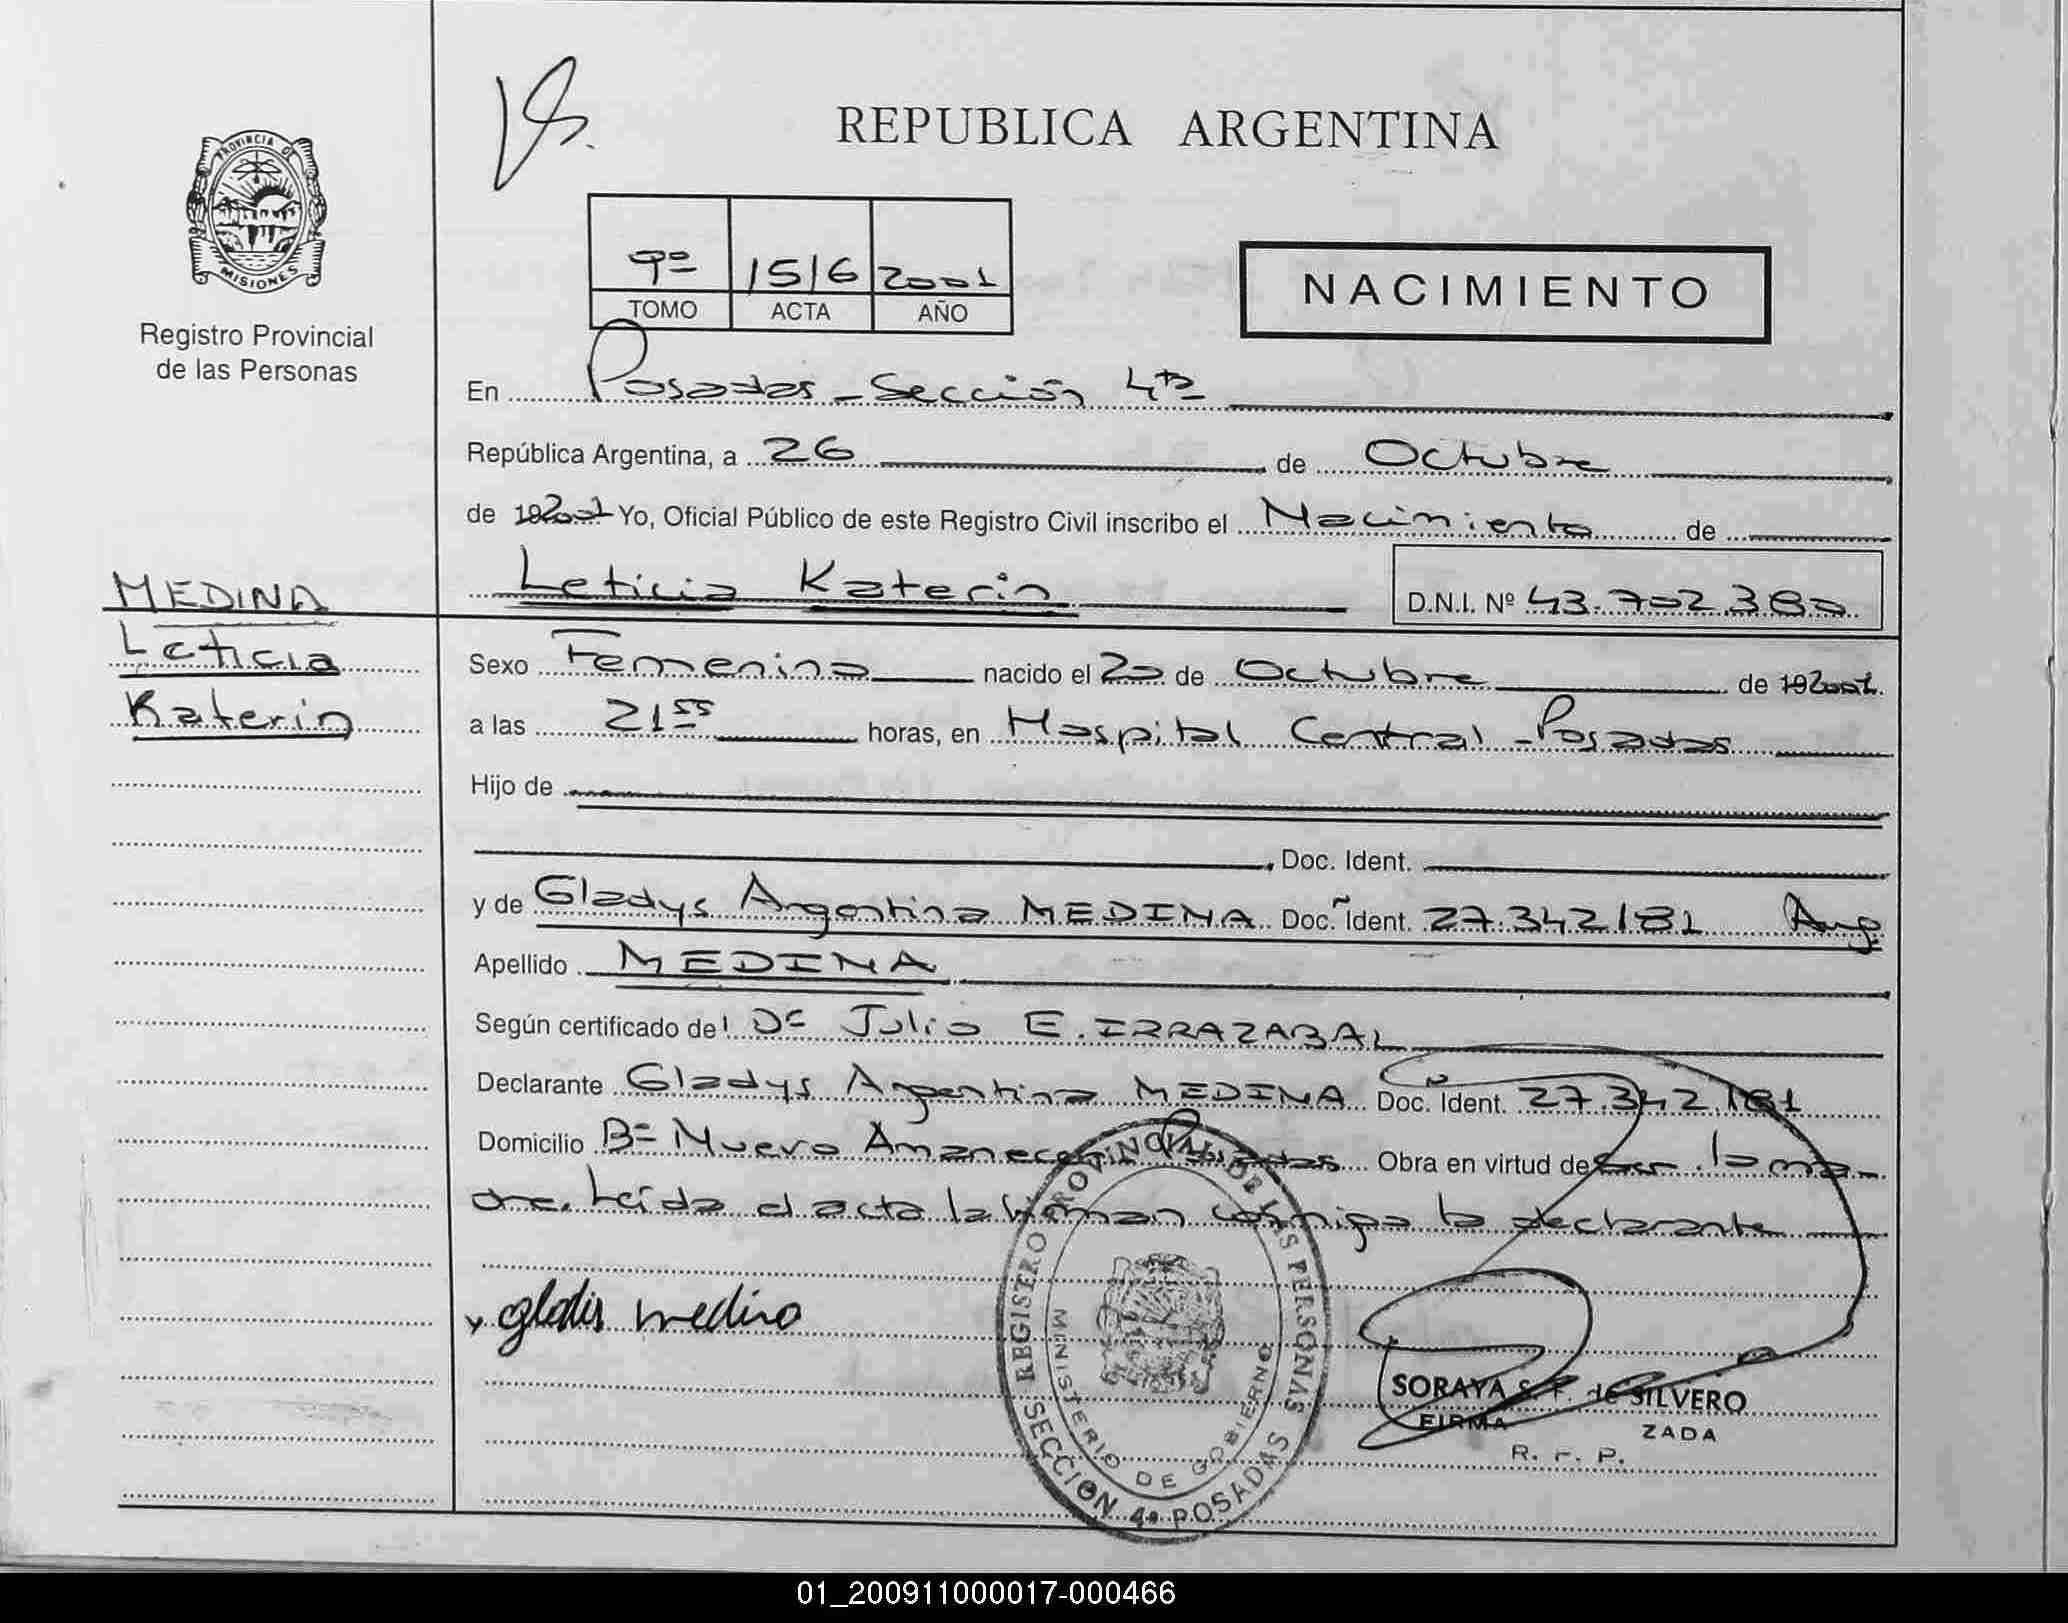 PROVINCIA DE
MISIONES
Registro Provincial
de las Personas
REPUBLICA ARGENTINA
9º 1516 2001
TOMO ACTA AÑO
NACIMIENTO
En Posadas - Sección 4ta
República Argentina, a 26 de Octubre
de 192001 Yo, Oficial Público de este Registro Civil inscribo el Nacimiento de
Leticia Katerin D.N.I. Nº 43.702.380
MEDINA
Leticia
Katerin
Sexo Femenino nacido el 20 de Octubre de 192001.
a las 21 55 horas, en Hospital Central - Posadas
Hijo de
, Doc. Ident.
y de Gladys Argentina MEDINA Doc. Ident. 27.342.181 Arg.
Apellido MEDINA
Según certificado del Dr Julio E. IRRAZABAL
Declarante Gladys Argentina MEDINA Doc. Ident. 27.342.181
Domicilio Bº Nuevo Amanecer Posadas Obra en virtud de ser la ma-
dre. Leída el acta la firman conmigo la declarante
gladis medina
REGISTRO PROVINCIAL DE LAS PERSONAS
MINISTERIO DE GOBIERNO
SECCION 4ª POSADAS
SORAYA S. F. de SILVERO
FIRMA ZADA
R. P.
01_200911000017-000466